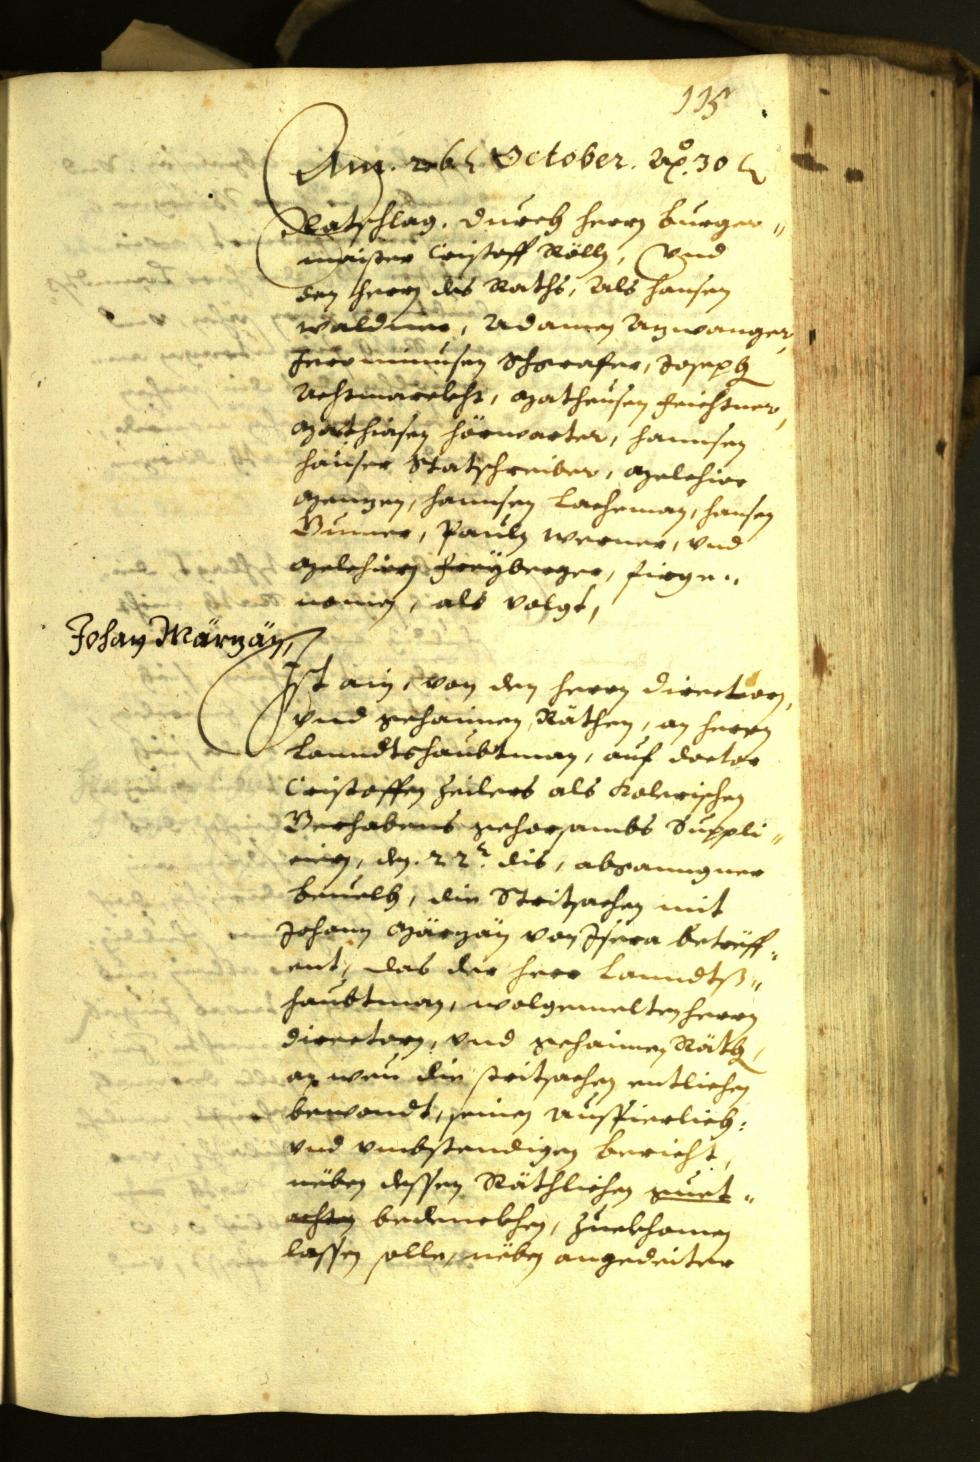 115
Am. 26t. October. Aõ. 30t
Ratschlag. durch herrn Burger-
maister Cristoff Röckh, Vnd
den herrn des Raths, Als hansen
Waldner, Adamen Anwanger,
Jeronimusen Schgrafer, Joseph
Achtmarckht, Matheusen Feichtner,
Mathiasen hörwarter, hannsen
hauser Statschreiber, Melchior
Menzen, hannsen Lacheman, hansen
Gumer, Pauln Werner, vnd
Melchiorn Freyberger, firge-
nomen, als volgt,
Johan Märzän,
Ist ain, von den herrn directorn,
vnd gehaimen Räthen, an herrn
Lanndtshaubtman, auf doctor
Cristoffen Zeilers als Kolerischen
Gerhabens gehorsambs Suppli-
ciern, den. 22t. dis, abganngner
beuelch, die Stritsachen mit
Johann Märzän von Isera betreff-
ent, das der herr Lanndtß-
haubtman, wolgemelten herrn
directorn, vnd gehaimen Räth,
an weu die stritsachen entlichen
bewandt, seinen Ausfierlich-
vnd vmbstendigen bericht,
neben dessen Räthlichen guet-
achten bedunckhen, zuekhomen
lassen solle, neben angedeiter